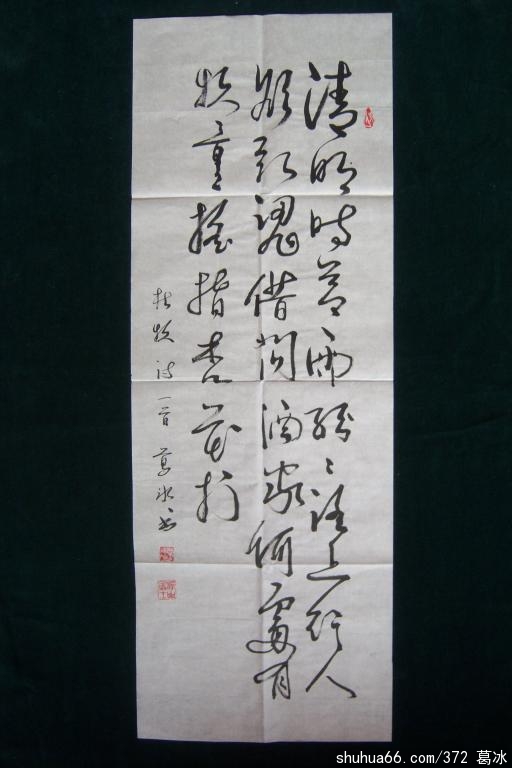 清明时节雨纷々路上行人
欲断魂借问酒家何處有
牧童遥指杏花村
杜牧诗一首 葛冰书
shuhua66.com/372 葛冰